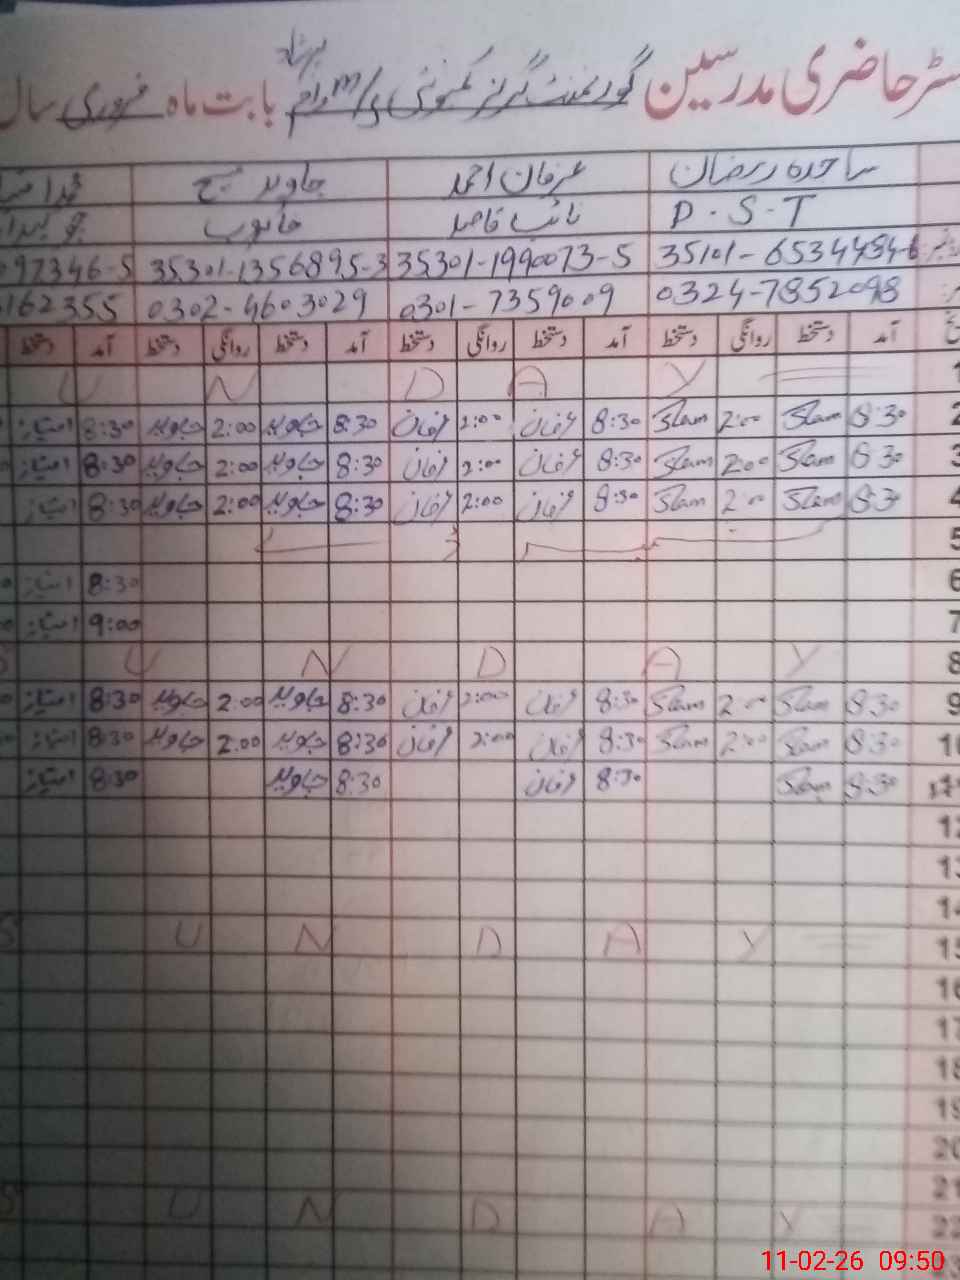 رجسٹر حاضری مدرسین گورنمنٹ گرلز کمیونٹی بابت ماہ فروری سال
ساجدہ رمضان عرفان احمد جاوید مسیح
D.S.T نائب قاصد خاکروب
35101-6534484-6 35301-1990073-5 35301-1356895-3 097346-5
0324-7852098 0301-7359009 0302-4603029 162355
آمد دستخط روانگی دستخط آمد دستخط روانگی دستخط آمد دستخط روانگی دستخط آمد دستخط
1 U N D A Y
2 8:30 Slam 2:00 Slam 8:30 عرفان 2:00 عرفان 8:30 جاوید 2:00 جاوید 8:30 امتیاز
3 8:30 Slam 2:00 Slam 8:30 عرفان 2:00 عرفان 8:30 جاوید 2:00 جاوید 8:30 امتیاز
4 8:30 Slam 2:00 Slam 8:30 عرفان 2:00 عرفان 8:30 جاوید 2:00 جاوید 8:30 امتیاز
5
6 8:30 امتیاز
7 9:00 امتیاز
8 S U N D A Y
9 8:30 Slam 2:00 Slam 8:30 عرفان 2:00 عرفان 8:30 جاوید 2:00 جاوید 8:30 امتیاز
10 8:30 Slam 2:00 Slam 8:30 عرفان 2:00 عرفان 8:30 جاوید 2:00 جاوید 8:30 امتیاز
8:30 Slam 8:30 عرفان 8:30 جاوید 8:30 امتیاز
12
13
14
15 S U N D A Y
16
17
18
19
20
21
22 S U N D A Y
23
11-02-26 09:50